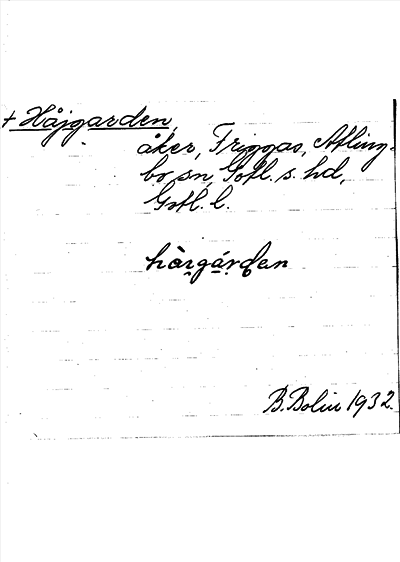 + Håjgarden,
åker, Triggas, Atling-
bo sn, Gotl. s. hd,
Gotl. l.
B. Bolin 1932.